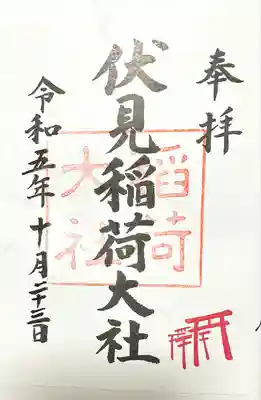 奉拝
伏見稲荷大社
稲荷
大社
令和五年十月二十三日